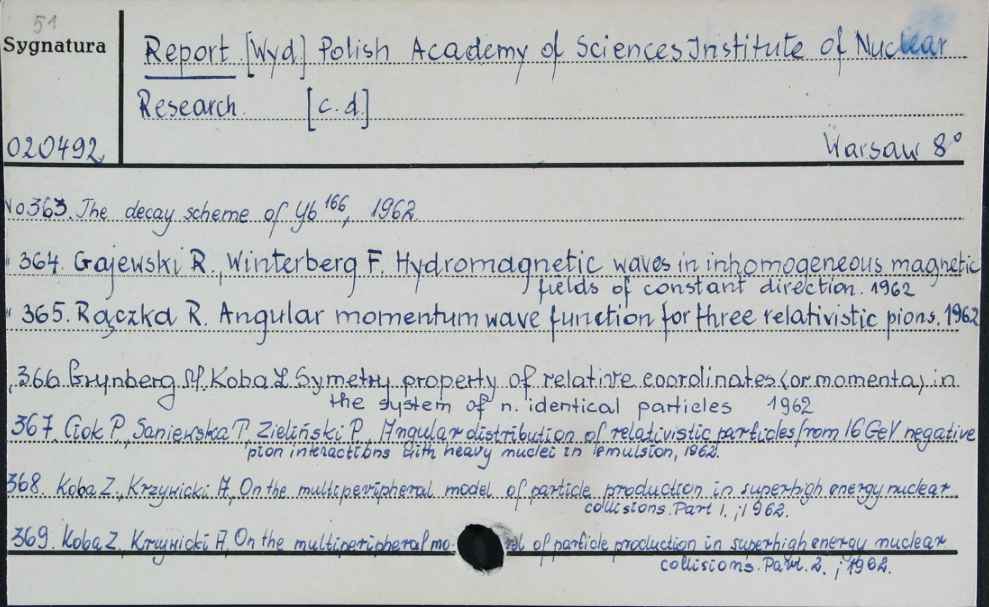 51
Sygnatura
Report [Wyd] Polish Academy of Sciences Institute of Nuclear
Research. [c.d.]
020492
Warsaw 8°
No 363. The decay scheme of Yb 166, 1962
" 364. Gajewski R., Winterberg F. Hydromagnetic waves in inhomogeneous magnetic
fields of constant direction. 1962
" 365. Rączka R. Angular momentum wave function for three relativistic pions. 1962
366. Grynberg M. Koba Z. Symetry property of relative coordinates (or momenta) in
the system of n. identical particles 1962
367. Ciok P., Saniewska T., Zieliński P., Angular distribution of relativistic particles from 16 GeV negative
pion interactions with heavy nuclei in emulsion, 1962.
368. Koba Z., Krzywicki A., On the multiperipheral model of particle production in superhigh energy nuclear
collisions. Part 1. ; 1962.
369. Koba Z., Krzywicki A., On the multiperipheral mo el of particle production in superhigh energy nuclear
collisions. Part. 2. ; 1962.